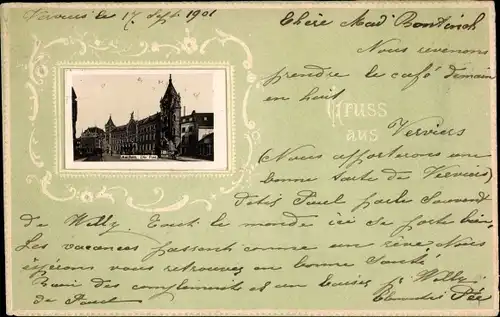 Verviers le 17 Sept. 1901
Chère Mad. Bontinck
Nous revenons
prendre le café demain
en huit
Gruss
aus Verviers
(Nous apporterons une
bonne tarte de Verviers)
Petit Paul parle souvent
Aachen. Die Post
de Willy. Tout le monde ici se porte bien
Les vacances passent comme un rêve. Nous
espérons vous retrouver en bonne santé
Bien des compliments et un baiser p. Willy
de Paul